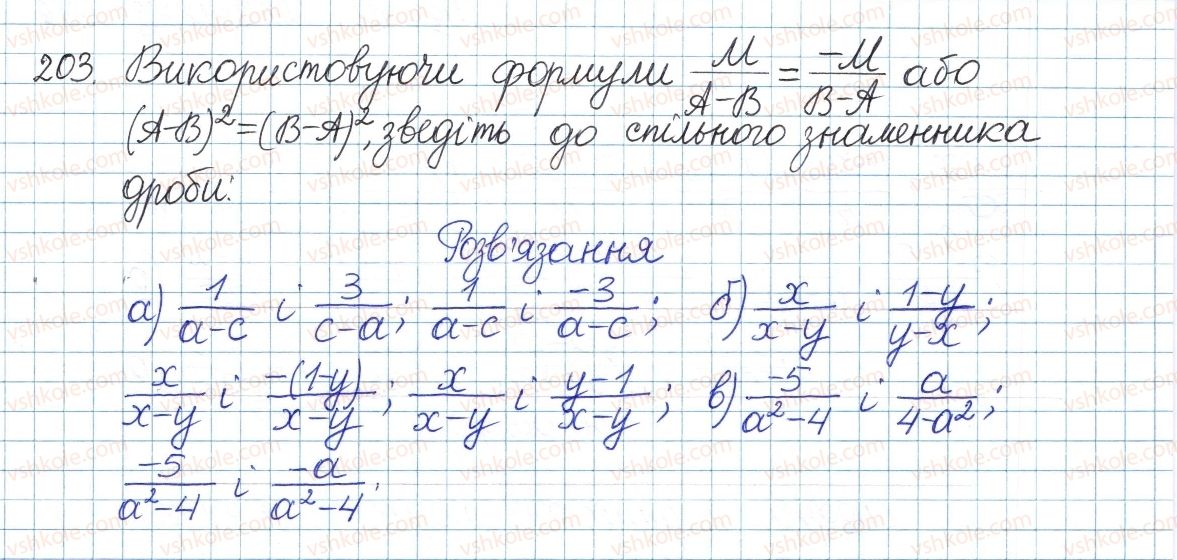 203. Використовуючи формули M/(A-B) = -M/(B-A) або
(A-B)²=(B-A)², зведіть до спільного знаменника
дроби:
Розв'язання
а) 1/(a-c) і 3/(c-a); 1/(a-c) і -3/(a-c); б) x/(x-y) і (1-y)/(y-x);
x/(x-y) і -(1-y)/(x-y); x/(x-y) і (y-1)/(x-y); в) -5/(a²-4) і a/(4-a²);
-5/(a²-4) і -a/(a²-4).